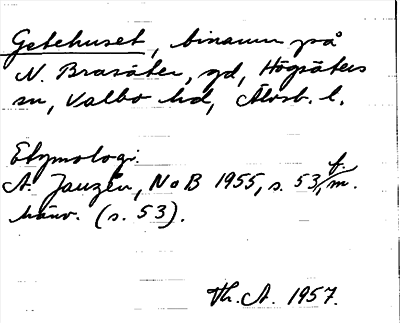 Getehuset, binamn på
N. Brasäter, gd, Högsäters
sn, Valbo hd, Älvsb. l.
Etymologi:
A. Janzén, NoB 1955, s. 53, f. m.
hänv. (s. 53).
Th. A. 1957.